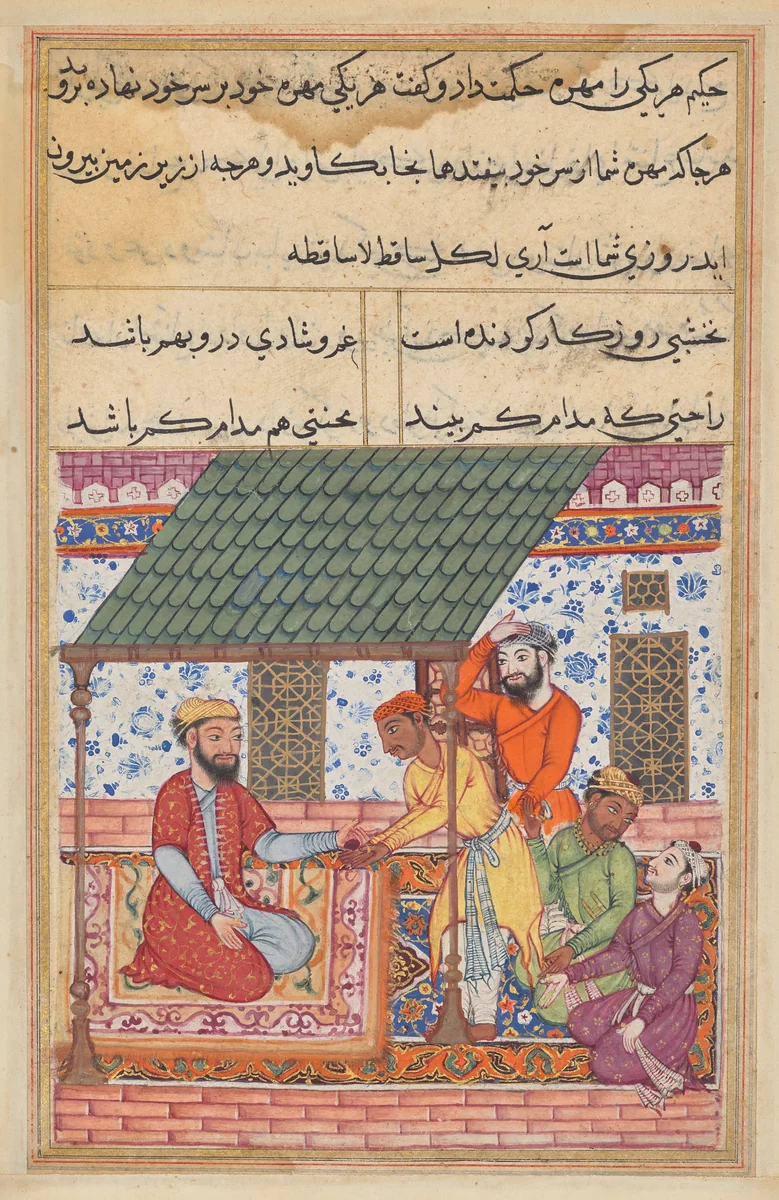 حکیم هر یکی را مهره حکمت داد و کفت هر یکی مهره خود بر سر خود نهاده بروید
هرجا که مهره شما از سر خود بیفتد هما نجا بکاوید و هرجه از زیر زمین بیرون
اید روزی شما است آری لکل ساقط لاساقطه
نخشبی روزکار کردنده است غم و شادی درو بهم باشد
راحتی که مدام کم بیند محنتی هم مدام کم باشد